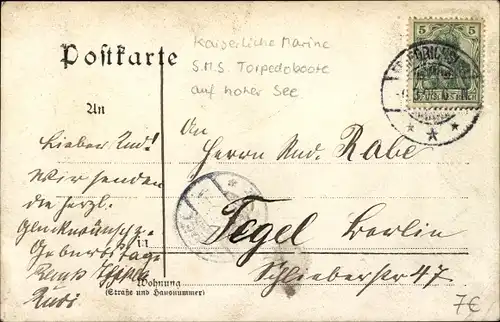 Postkarte
Kaiserliche Marine
S.M.S. Torpedoboote
auf hoher See
5
An
Lieber Rud!
Wir senden
die herzl.
Glückwünsche z.
Geburtstage
Rudi
An
Herrn Rud. Rabe
Tegel Berlin
Schlieberstr 47
in
Wohnung
(Straße und Hausnummer)
7€